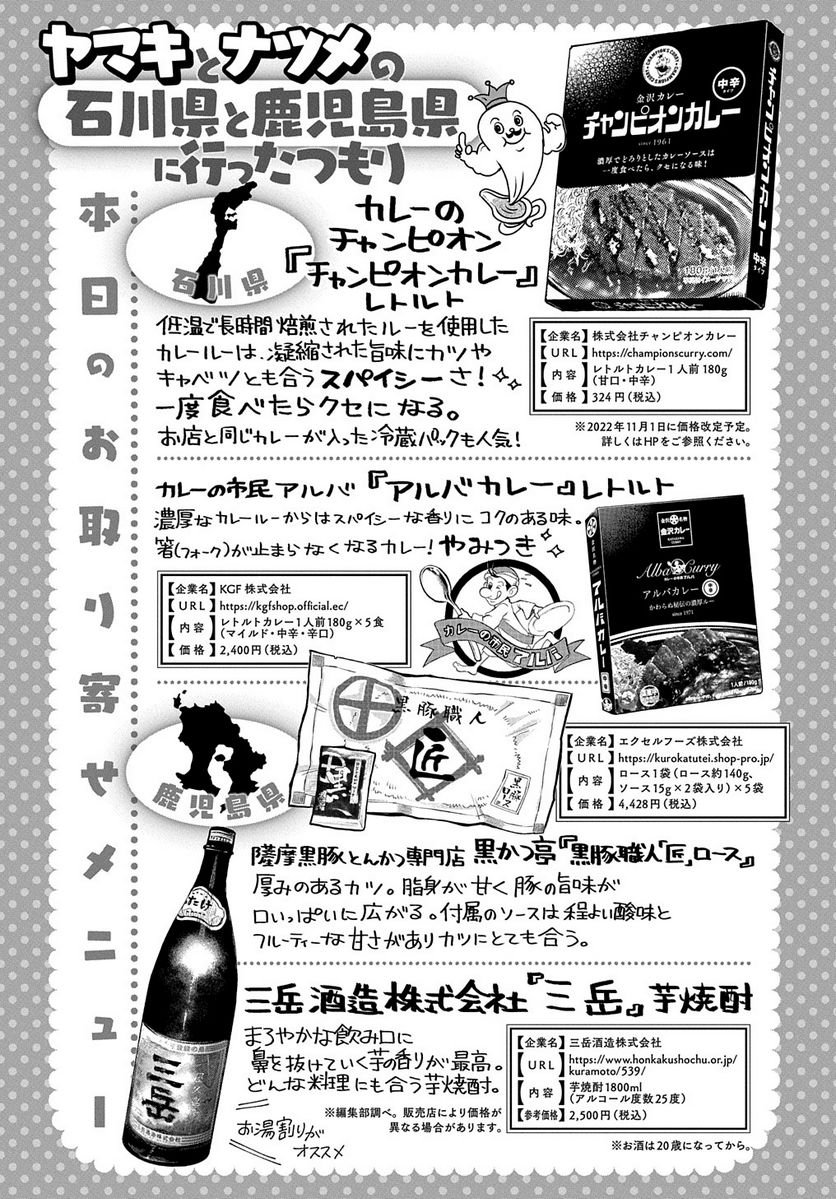 ヤマキとナツメの
石川県と鹿児島県
に行ったつもり
本日のお取り寄せメニュー
石川県
カレーの
チャンピオン
『チャンピオンカレー』
レトルト
金沢カレー
チャンピオンカレー
since 1961
中辛
タイプ
濃厚でどろりとしたカレーソースは
一度食べたら、クセになる味！
低温で長時間焙煎されたルーを使用した
カレールーは、凝縮された旨味にカツや
キャベツとも合うスパイシーさ！
一度食べたらクセになる。
お店と同じカレーが入った冷蔵パックも人気！
【企業名】株式会社チャンピオンカレー
【URL】https://championscurry.com/
【内容】レトルトカレー1人前 180g
(甘口・中辛)
【価格】324円（税込）
※2022年11月1日に価格改定予定。
詳しくはHPをご参照ください。
カレーの市民アルバ『アルバカレー』レトルト
濃厚なカレールーからはスパイシーな香りにコクのある味。
箸(フォーク)が止まらなくなるカレー！やみつき
【企業名】KGF 株式会社
【URL】https://kgfshop.official.ec/
【内容】レトルトカレー1人前180g×5食
(マイルド・中辛・辛口)
【価格】2,400円（税込）
カレーの市民アルバ
金沢名物
金沢カレー
Alba Curry
カレーの市民アルバ
アルバカレー
かわらぬ秘伝の濃厚ルー
since 1971
アルバカレー
1人前/180g
鹿児島県
黒豚職人
匠
黒豚ロース
【企業名】エクセルフーズ株式会社
【URL】https://kurokatutei.shop-pro.jp/
【内容】ロース1袋（ロース約140g、
ソース15g×2袋入り）×5袋
【価格】4,428円（税込）
薩摩黒豚とんかつ専門店 黒かつ亭『黒豚職人「匠」ロース』
厚みのあるカツ。脂身が甘く豚の旨味が
口いっぱいに広がる。付属のソースは程よい酸味と
フルーティーな甘さがありカツにとても合う。
三岳酒造株式会社『三岳』芋焼酎
まろやかな飲み口に
鼻を抜けていく芋の香りが最高。
どんな料理にも合う芋焼酎。
お湯割りが
オススメ
三岳
【企業名】三岳酒造株式会社
【URL】https://www.honkakushochu.or.jp/
kuramoto/539/
【内容】芋焼酎1800ml
(アルコール度数25度)
【参考価格】2,500円（税込）
※編集部調べ。販売店により価格が
異なる場合があります。
※お酒は20歳になってから。